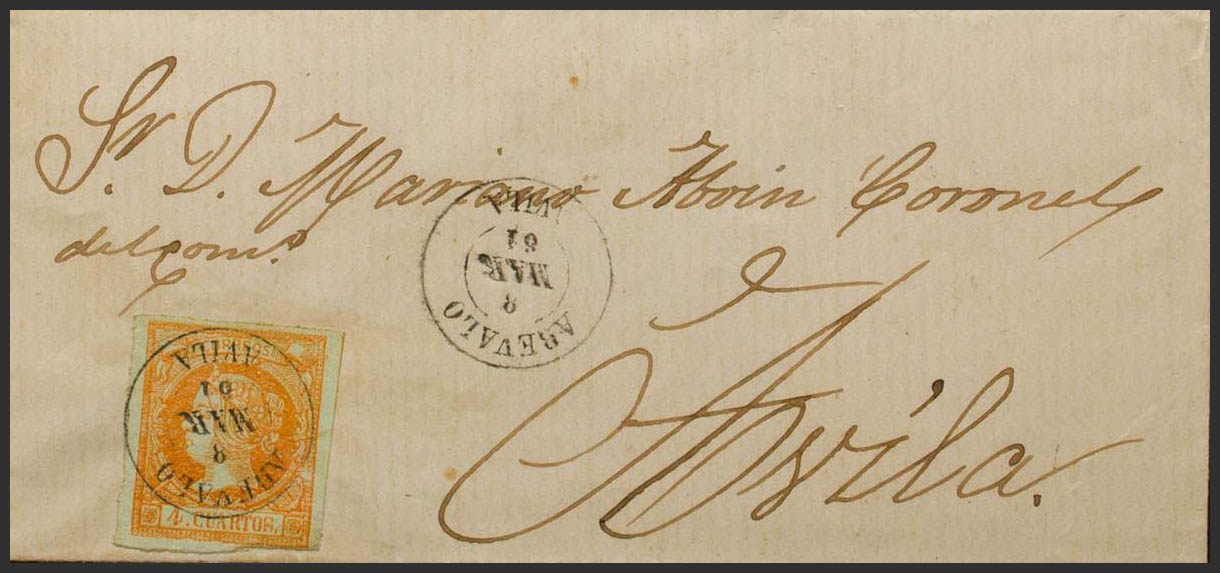 Sr. D. Mariano Aboin Coronel
del com.º
AREVALO
8
MAR
61
AVILA
AREVALO
8
MAR
61
AVILA
4 CUARTOS.
Avila.